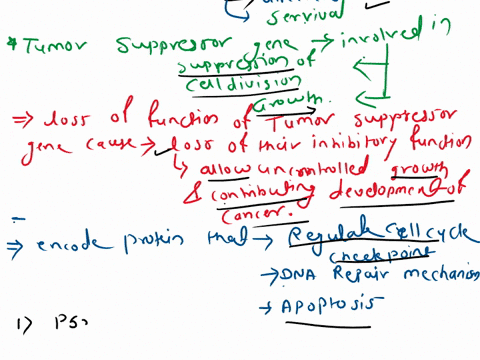 serrival
* Tumor suppressor gene → involved in
suppression of
cell division
Growth.
⇒ loss of function of Tumor suppressor
gene cause → loss of their inhibitory function
↳ allow uncontrolled growth
& contributing development of
cancer.
⇒ encode protein that → Regulate cell cycle
checkpoint
→ DNA Repair mechanism
→ Apoptosis
1) P5